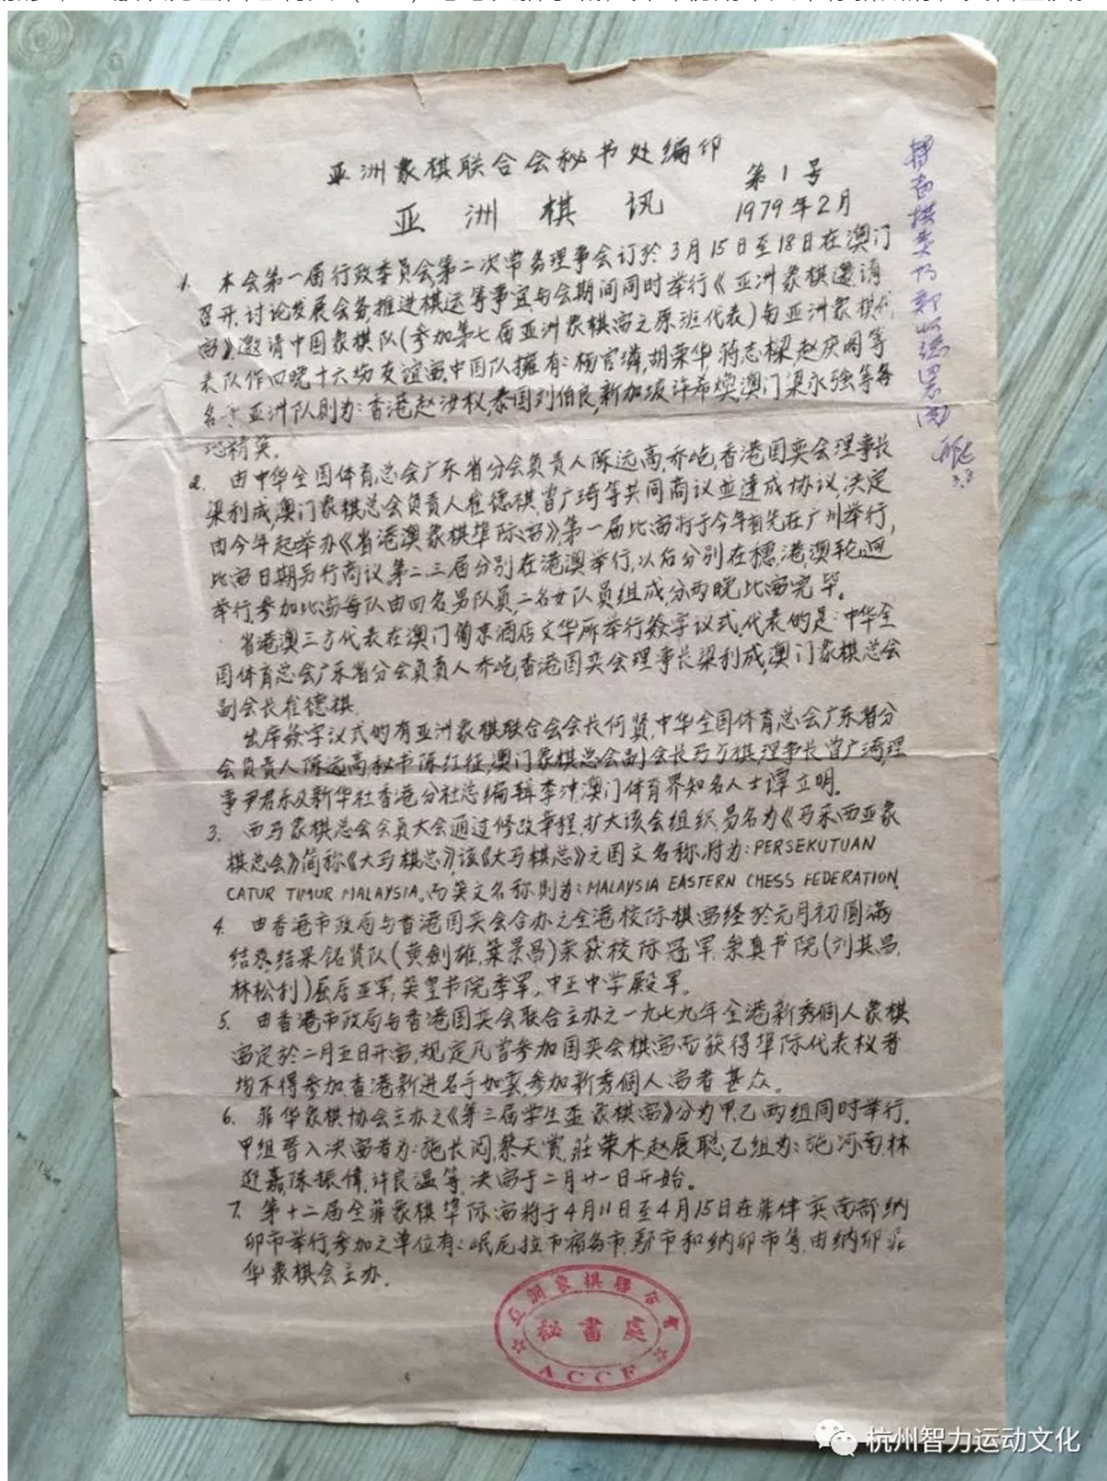 亚洲象棋联合会秘书处编印
第1号
亚洲棋讯
1979年2月
1. 本会第一届行政委员会第二次常务理事会订於3月15日至18日在澳门
召开,讨论发展会务,推进棋运等事宜,与会期间同时举行《亚洲象棋邀请
赛》,邀请中国象棋队(参加第七届亚洲象棋赛之原班代表)与亚洲象棋代
表队作四晚十六场友谊赛,中国队拥有:杨官璘,胡荣华,蒋志樑,赵庆阁等
名 亚洲队则为:香港赵汝权,泰国刘伯良,新加坡许希焕,澳门梁永强等各
地精英。
2. 由中华全国体育总会广东省分会负责人陈远高,乔屹,香港国奕会理事长
梁利成,澳门象棋总会负责人崔德祺,曾广琦等共同商议並達成协议,决定
由今年起举办《省港澳象棋埠际赛》,第一届比赛将于今年首先在广州举行,
比赛日期另行商议,第二三届分别在港澳举行,以后分别在穗,港,澳轮迴
举行,参加比赛每队由四名男队员,二名女队员组成,分两晚比赛完毕。
省港澳三方代表在澳门葡京酒店文华所举行签字议式,代表的是:中华全
国体育总会广东省分会负责人乔屹,香港国奕会理事长梁利成,澳门象棋总会
副会长崔德祺.
出席签字仪式的有亚洲象棋联合会会长何贤,中华全国体育总会广东省分
会负责人陈远高,秘书陈红征,澳门象棋总会副会长马万祺,理事长曾广琦,理
事尹君乐及新华社香港分社总编辑李冲,澳门体育界知名人士谭立明。
3. 西马象棋总会会员大会通过修改章程,扩大该会组织,易名为《马来西亚象
棋总会》简称《大马棋总》,该《大马棋总》之国文名称,将为:PERSEKUTUAN
CATUR TIMUR MALAYSIA,而英文名称则为:MALAYSIA EASTERN CHESS FEDERATION.
4. 由香港市政局与香港国奕会合办之全港校际棋赛经於元月初圆满
结束,结果铭贤队(黄剑雄,叶景昌)荣获校际冠军,崇真书院(刘其昌,
林松钊)屈居亚军,英皇书院季军,中正中学殿军。
5. 由香港市政局与香港国奕会联合主办之一九七九年全港新秀個人象棋
赛定於二月五日开赛,规定凡曾参加国奕会棋赛而获得埠际代表权者
均不得参加,香港新进名手如雲,参加新秀個人赛者甚众。
6. 菲华象棋协会主办之《第三届学生盃象棋赛》分为甲,乙两组同时举行,
甲组晋入决赛者为:施长闵,蔡天赏,莊荣木,赵展聪,乙组为:施河南,林
逰嘉,陈振偉,许良温等,决赛于二月廿一日开始。
7. 第十二届全菲象棋埠际赛将于4月11日至4月15日在菲律宾南部纳
卯市举行,参加之单位有:岷尼拉市,宿务市,  市和纳卯市等,由纳卯菲
华象棋会主办.
亚洲象棋聯合會
秘書處
ACCF
杭州智力运动文化